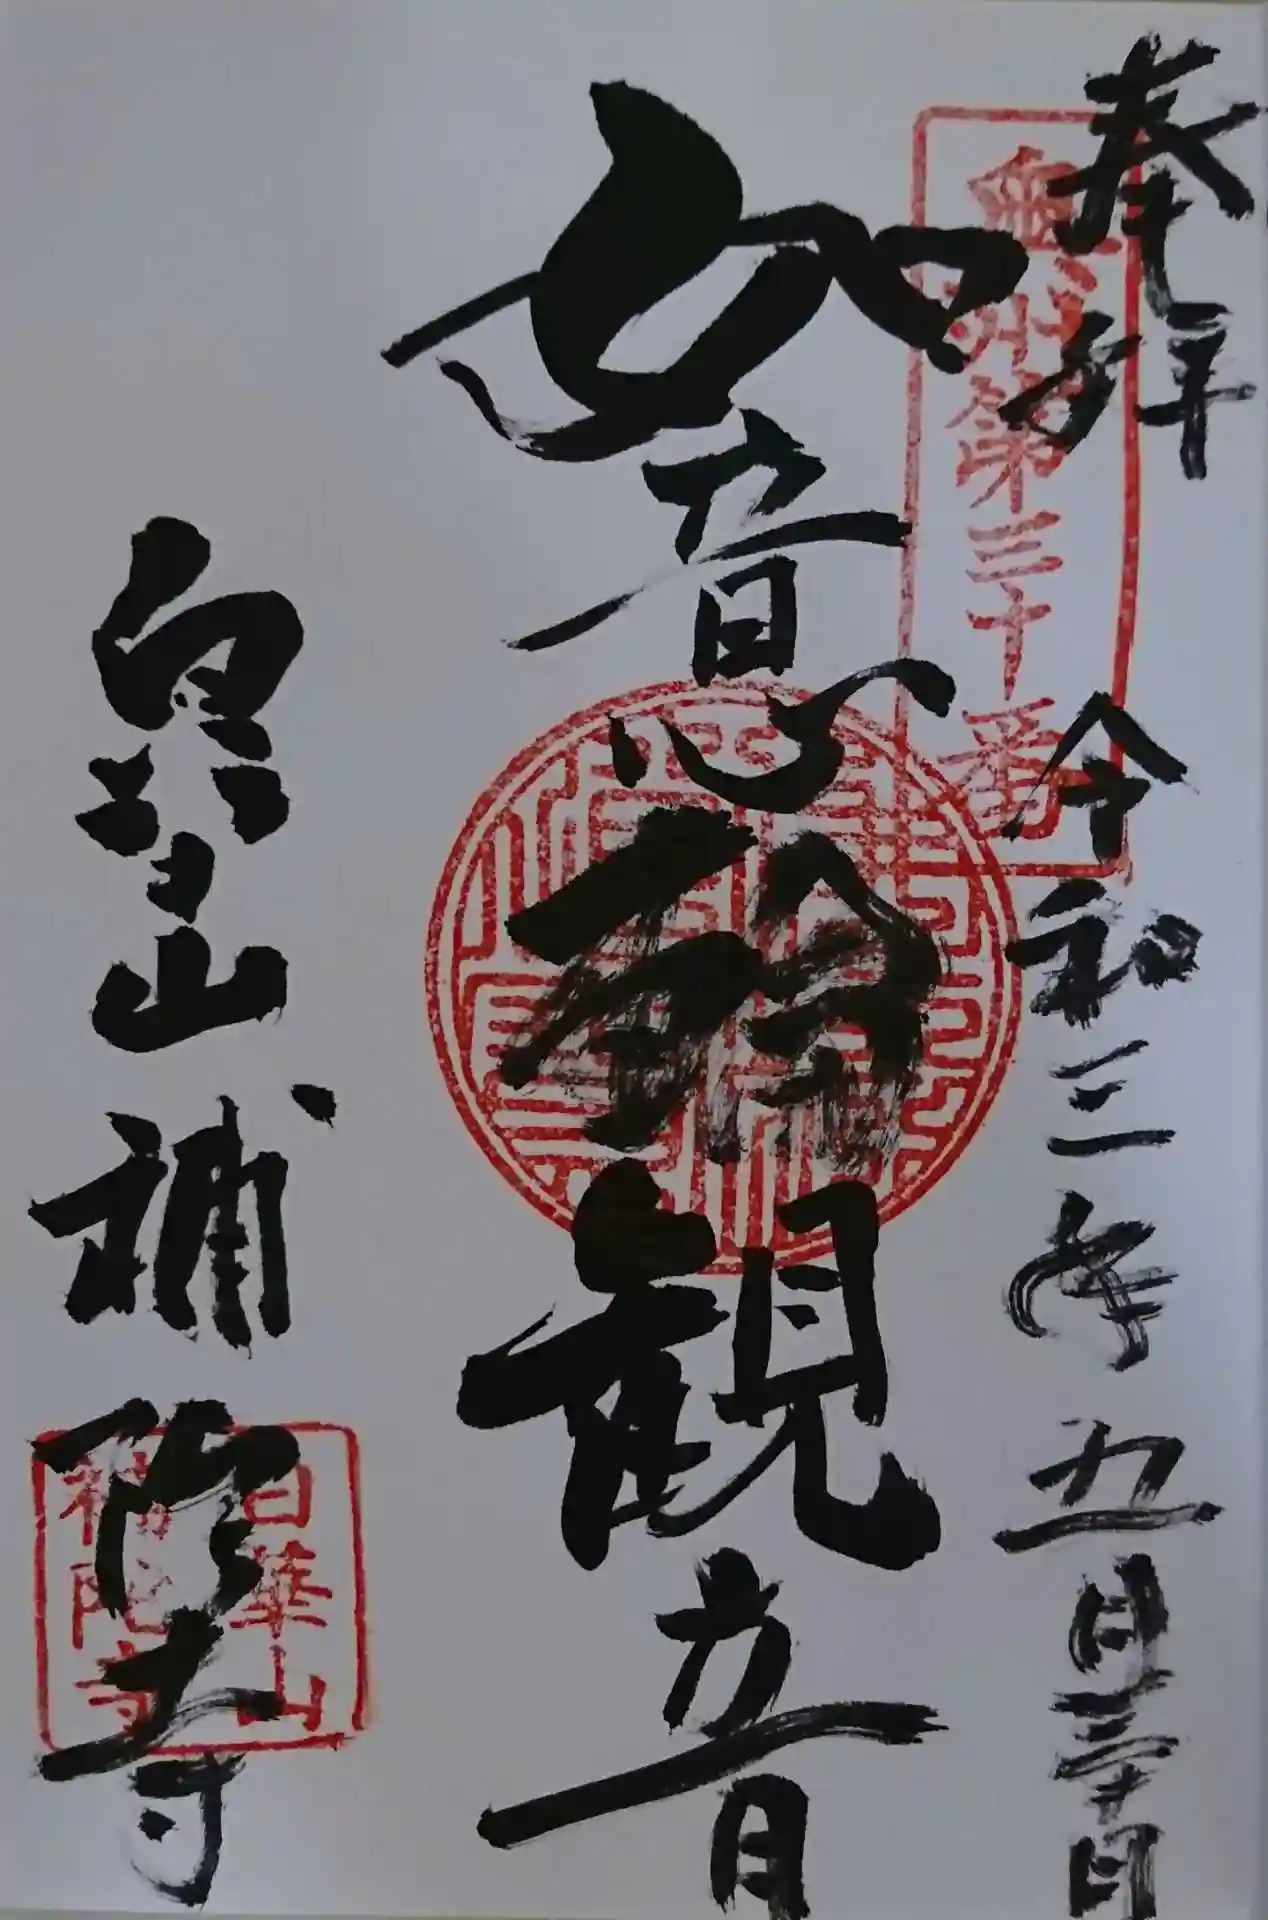 奉拝
令和三年五月三十日
奥州第三十番
如意輪観音
白華山補陀寺
白華山
補陀寺